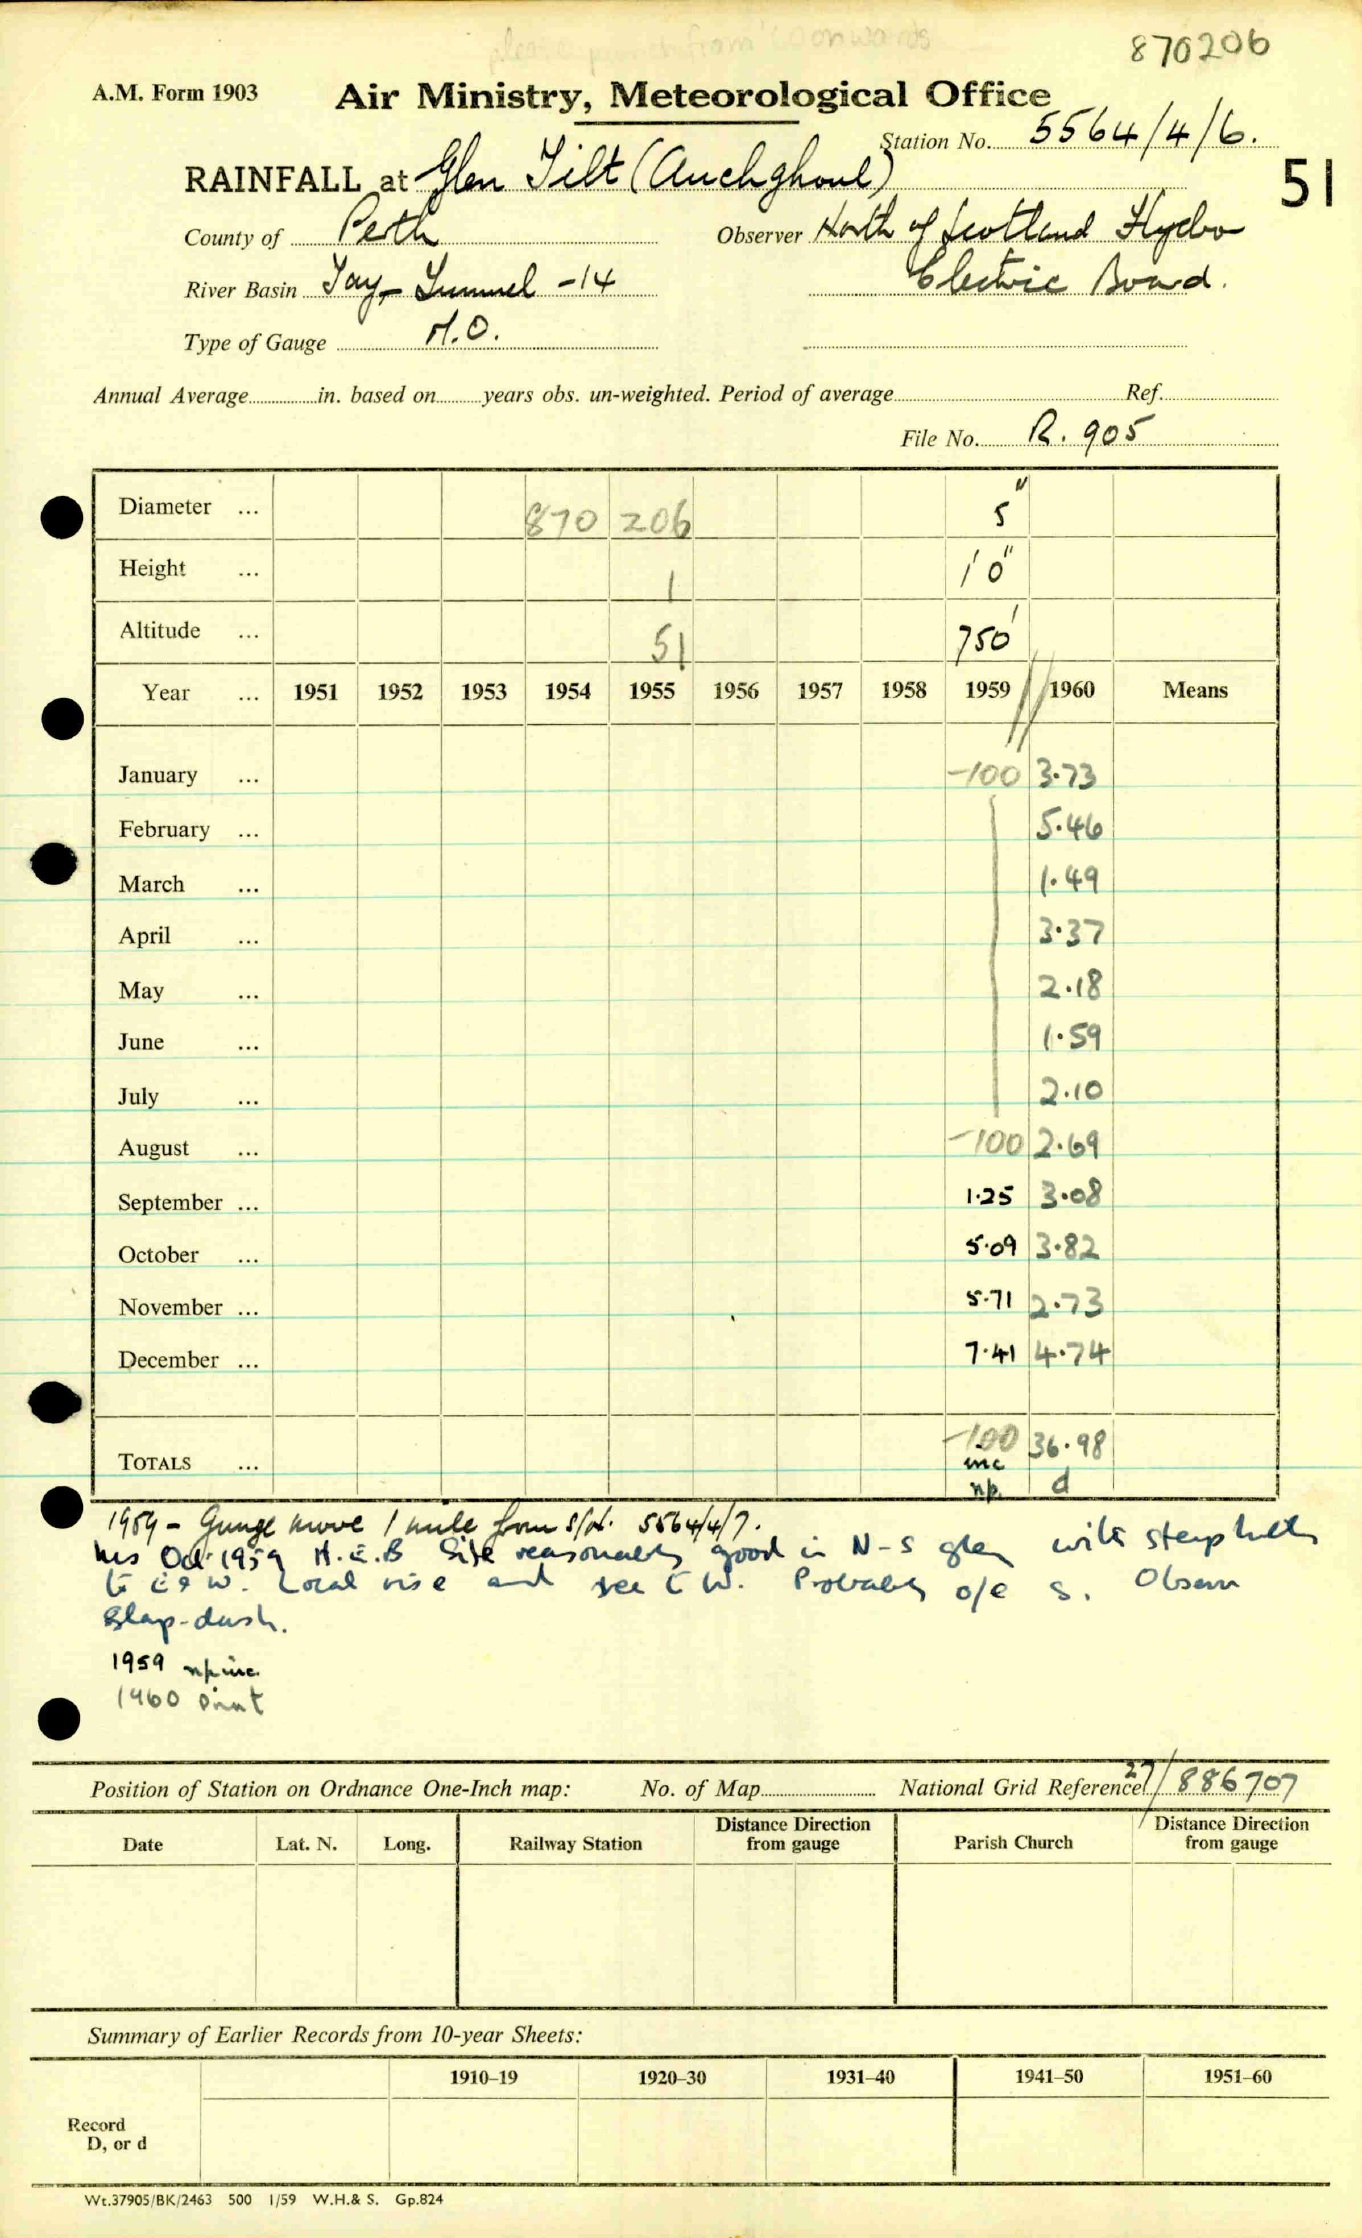 please punch from '60 onwards
870206
A.M. Form 1903
Air Ministry, Meteorological Office
Station No. 5564/4/6.
RAINFALL at Glen Tilt (Auchghoul)
51
County of Perth
Observer North of Scotland Hydro
River Basin Tay - Tummel - 14
Electric Board.
Type of Gauge M.O.
Annual Average in. based on years obs. un-weighted. Period of average Ref.
File No. R. 905
Diameter ... 870 206 5"
Height ... 1 1'0"
Altitude ... 51 750'
Year ... 1951 1952 1953 1954 1955 1956 1957 1958 1959 // 1960 Means
January ... -100 3.73
February ... 5.46
March ... 1.49
April ... 3.37
May ... 2.18
June ... 1.59
July ... 2.10
August ... -100 2.69
September ... 1.25 3.08
October ... 5.09 3.82
November ... 5.71 2.73
December ... 7.41 4.74
TOTALS ... -100 36.98
inc
np. d
1959 - Gauge move 1 mile from 5564/4/7.
Oct 1959 H.E.B Site reasonably good in N-S glen with steep hills
to E & W. Local rise and W. Probably o/e S.
Slap-dash.
1959 np inc.
1960 print
Position of Station on Ordnance One-Inch map: No. of Map National Grid Reference 27/886707
Date Lat. N. Long. Railway Station Distance Direction from gauge Parish Church Distance Direction from gauge
Summary of Earlier Records from 10-year Sheets:
1910–19 1920–30 1931–40 1941–50 1951–60
Record
D, or d
Wt.37905/BK/2463 500 1/59 W.H.& S. Gp.824